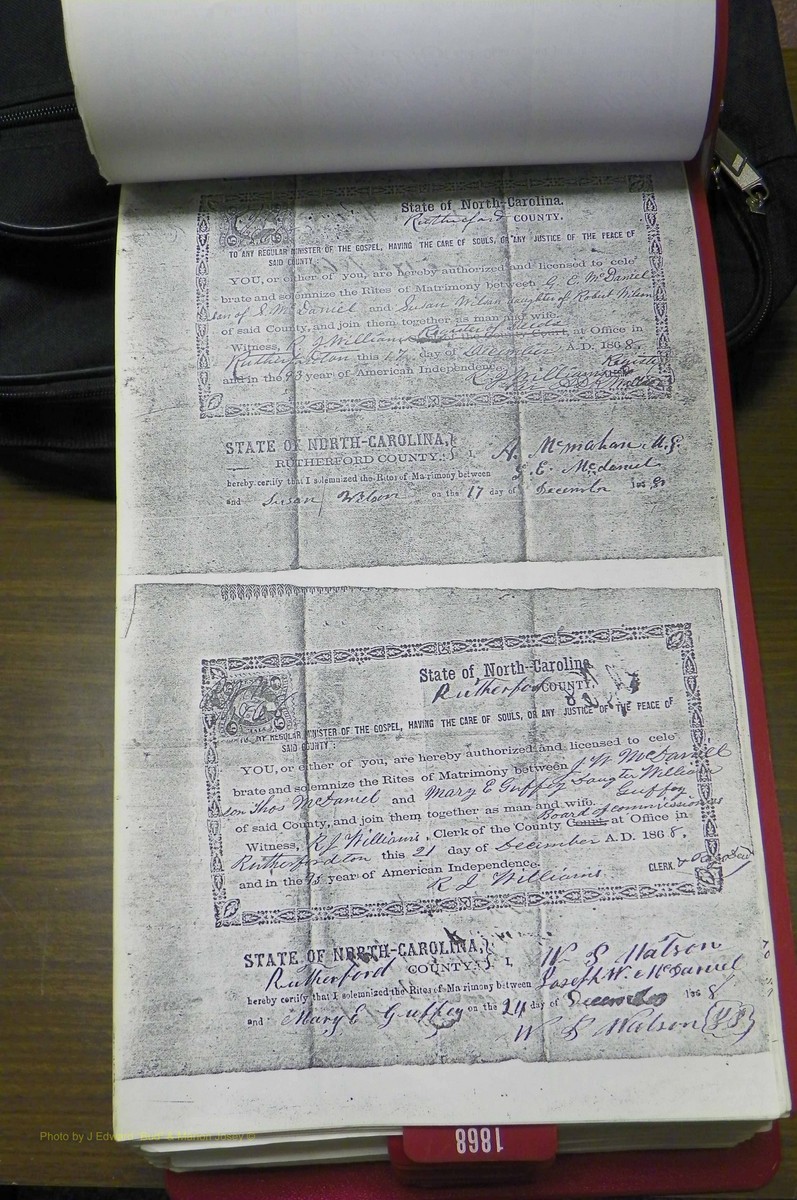 State of North-Carolina.
Rutherford COUNTY.
TO ANY REGULAR MINISTER OF THE GOSPEL, HAVING THE CARE OF SOULS, OR ANY JUSTICE OF THE PEACE OF
SAID COUNTY:
YOU, or either of you, are hereby authorized and licensed to cele-
brate and solemnize the Rites of Matrimony between G. E. McDaniel
son of S. McDaniel and Susan Wilson daughter of Robert Wilson
of said County, and join them together as man and wife.
Register of Deeds
Witness, R J Williams Court, at Office in
Rutherfordton this 17 day of December A.D. 1868.
and in the 93 year of American Independence.
Register
R J Williams
STATE OF NORTH-CAROLINA,
RUTHERFORD COUNTY. I, A. McMahan M.G.
hereby certify that I solemnized the Rites of Matrimony between G. E. McDaniel
and Susan Wilson on the 17 day of December 1868
State of North-Carolina
Rutherford COUNTY.
TO ANY REGULAR MINISTER OF THE GOSPEL, HAVING THE CARE OF SOULS, OR ANY JUSTICE OF THE PEACE OF
SAID COUNTY:
YOU, or either of you, are hereby authorized and licensed to cele-
brate and solemnize the Rites of Matrimony between J W McDaniel
son Thos McDaniel and Mary E Guffey Daughter William
Guffey
of said County, and join them together as man and wife.
Board of commissioners
Witness, R J Williams, Clerk of the County Court, at Office in
Rutherfordton this 21 day of December A.D. 1868.
and in the 93 year of American Independence.
R J Williams CLERK
STATE OF NORTH-CAROLINA,
Rutherford COUNTY. I, W S Watson
hereby certify that I solemnized the Rites of Matrimony between Joseph W. McDaniel
and Mary E Guffey on the 24 day of December 1868
W S Watson
1868
Photo by J Edward